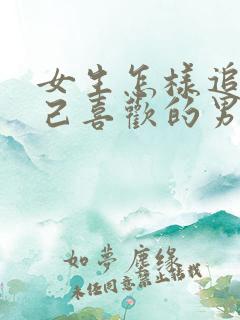 女生怎樣追
己喜歡的男
如夢塵緣
未经同意禁止转载